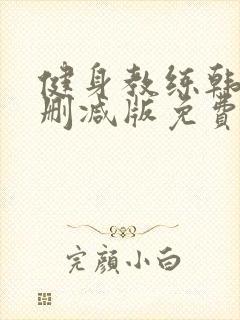 健身教练韩
删减版免费
完颜小白